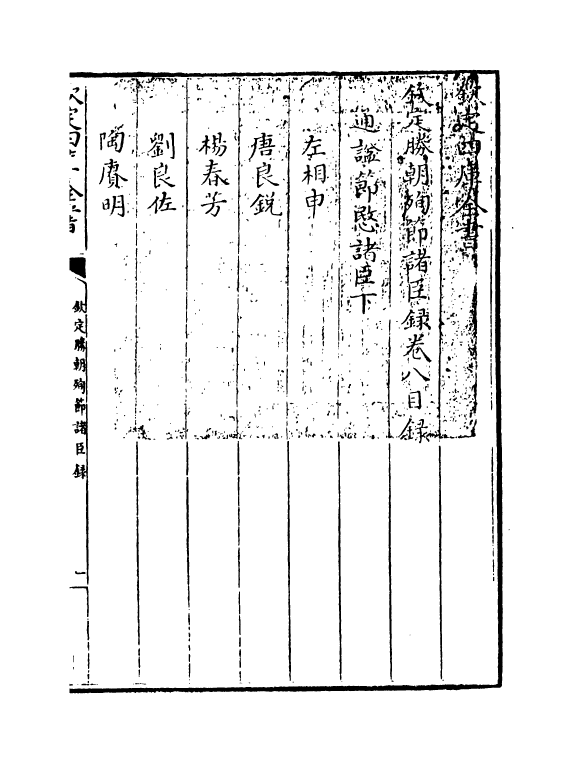 欽定四庫全書
欽定勝朝殉節諸臣録卷八目録
通諡節愍諸臣下
左相申
唐良鋭
楊春芳
劉良佐
陶賡明
欽定四庫全書
欽定勝朝殉節諸臣録
一